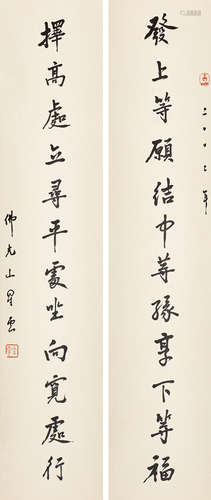 二〇〇七年
發上等願結中等緣享下等福
擇高處立尋平處坐向寬處行
佛光山星雲